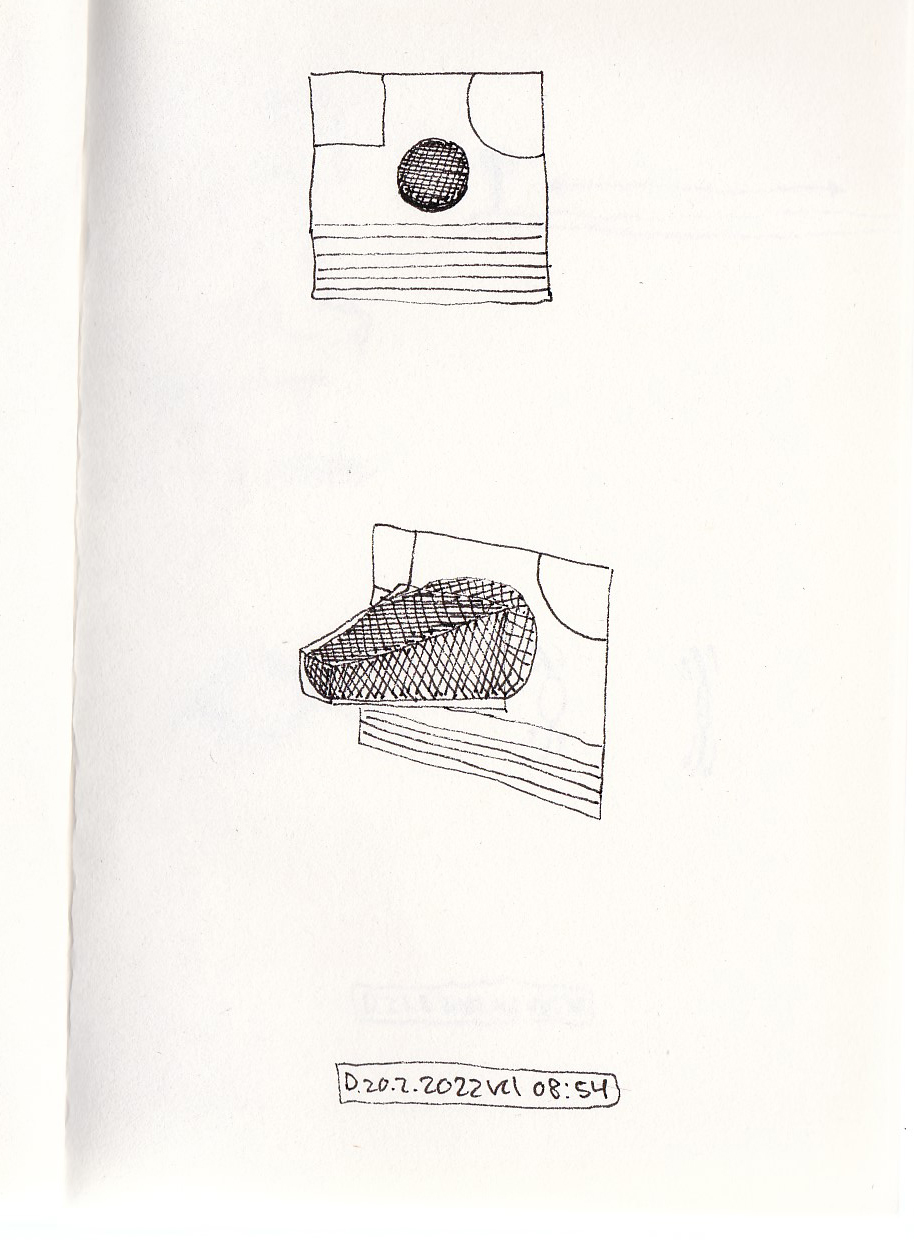 D.20.2.2022 kl 08:54